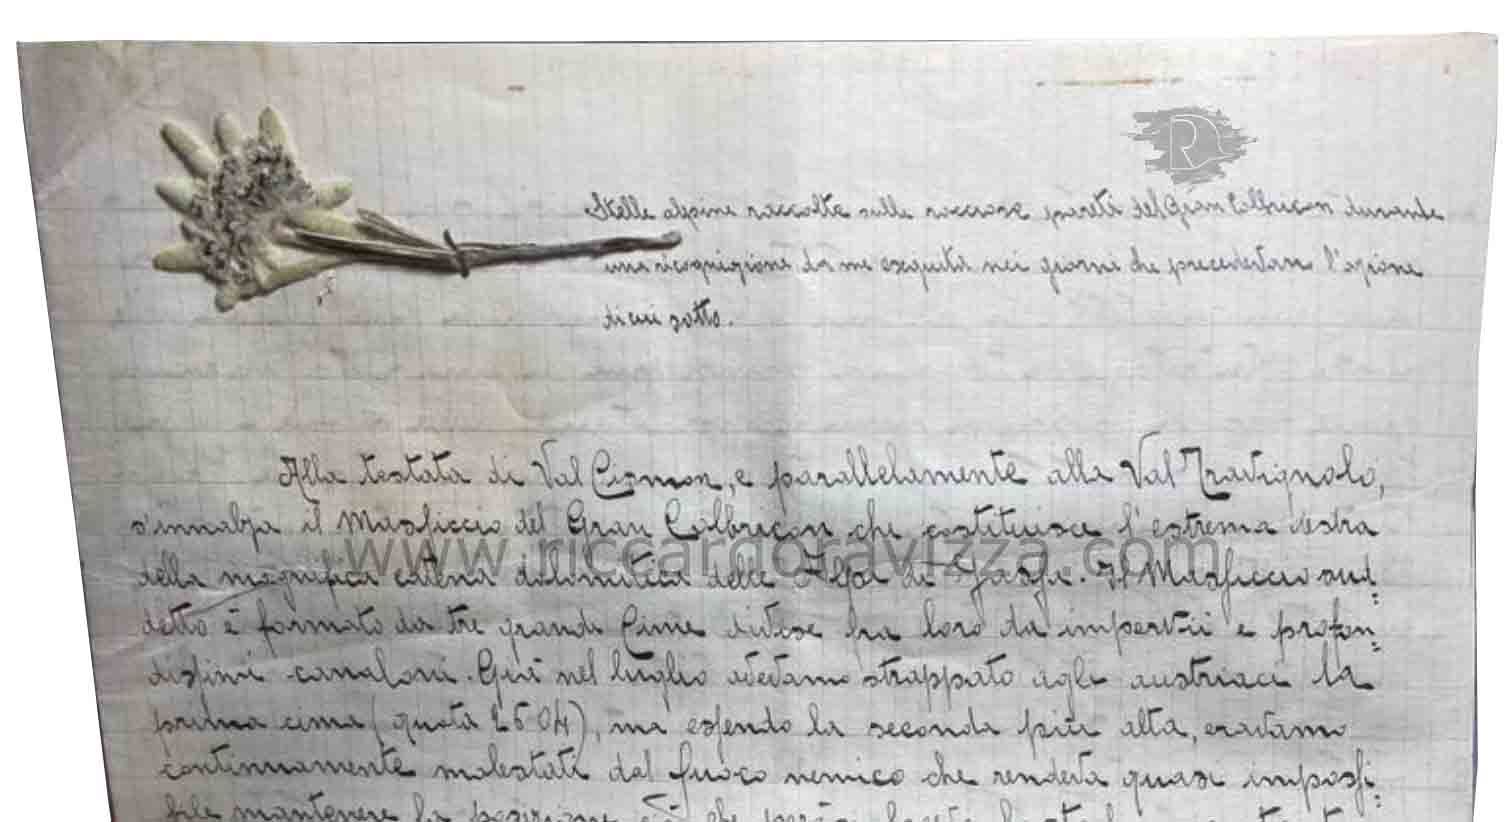 Stelle alpine raccolte sulle rocciose pareti del Gran Colbricon durante
una ricognizione da me eseguita nei giorni che precedettero l'azione
di cui sotto.
Alla testata di Val Cismon, e parallelamente alla Val Travignolo,
s'innalza il Massiccio del Gran Colbricon che costituisce l'estrema destra
della magnifica catena dolomitica delle Alpi di Fassa. Il Massiccio sud=
detto è formato da tre grandi Cime divise fra loro da impervii e profon=
dissimi canaloni. Già nel luglio avevamo strappato agli austriaci la
prima cima (quota 2604), ma essendo la seconda più alta, eravamo
continuamente molestati dal fuoco nemico che rendeva quasi impossi=
bile mantenere la posizione
www.riccardoravizza.com
R